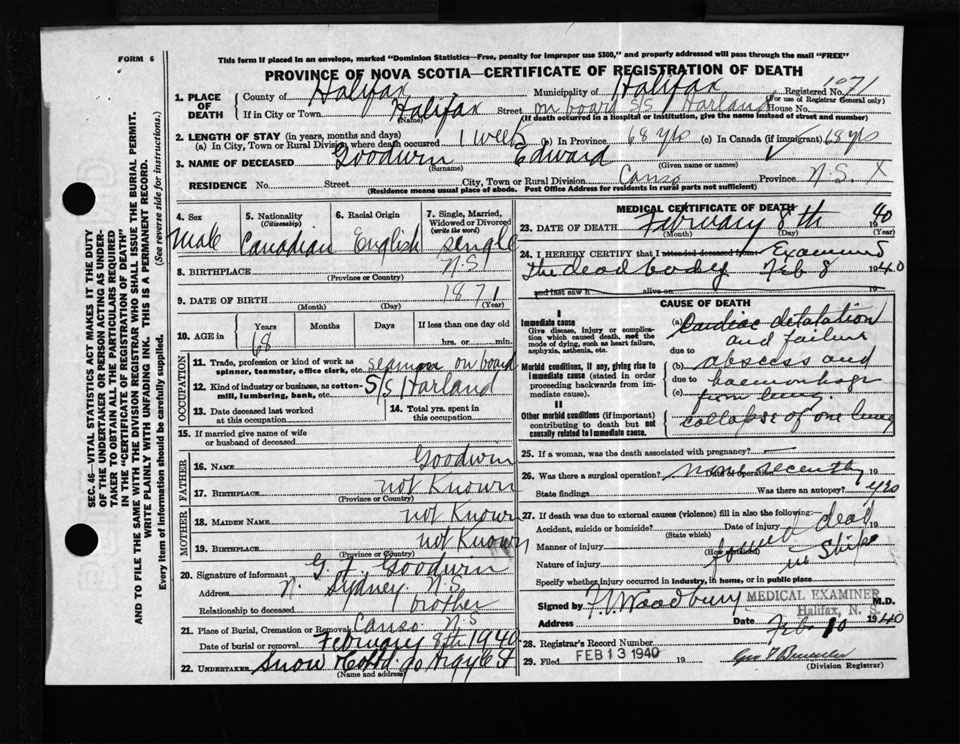 FORM 6
This form if placed in an envelope, marked "Dominion Statistics—Free, penalty for improper use $300," and properly addressed will pass through the mail "FREE"
PROVINCE OF NOVA SCOTIA—CERTIFICATE OF REGISTRATION OF DEATH
1. PLACE OF DEATH County of Halifax Municipality of Halifax Registered No. 1071
(For use of Registrar General only)
If in City or Town Halifax Street on board S/S Harland House No.
(Name) (If death occurred in a hospital or institution, give the name instead of street and number)
2. LENGTH OF STAY (in years, months and days)
(a) In City, Town or Rural Division where death occurred 1 week (b) In Province 68 yrs (c) In Canada (if immigrant) 68 yrs
3. NAME OF DECEASED Goodwin Edward
(Surname) (Given name or names)
RESIDENCE No. Street City, Town or Rural Division Canso Province N.S. X
(Residence means usual place of abode. Post Office Address for residents in rural parts not sufficient)
4. Sex 5. Nationality (Citizenship) 6. Racial Origin 7. Single, Married, Widowed or Divorced (write the word)
Male Canadian English single
8. BIRTHPLACE N.S
(Province or Country)
9. DATE OF BIRTH 1871
(Month) (Day) (Year)
10. AGE in Years Months Days If less than one day old
68 hrs. or min.
OCCUPATION
11. Trade, profession or kind of work as spinner, teamster, office clerk, etc. seaman on board
12. Kind of industry or business, as cotton-mill, lumbering, bank, etc. S/S Harland
13. Date deceased last worked at this occupation
14. Total yrs. spent in this occupation
15. If married give name of wife or husband of deceased
FATHER
16. NAME Goodwin
17. BIRTHPLACE not Known
(Province or Country)
MOTHER
18. MAIDEN NAME not Known
19. BIRTHPLACE not Known
(Province or Country)
20. Signature of informant G. F. Goodwin
Address N. Sydney N.S
Relationship to deceased brother
21. Place of Burial, Cremation or Removal Canso N.S
Date of burial or removal February 8th 1940
22. UNDERTAKER Snow Argyle St
(Name and address)
MEDICAL CERTIFICATE OF DEATH
23. DATE OF DEATH February 8th 40
(Month) (Day) (Year)
24. I HEREBY CERTIFY that I attended deceased from Examined
the dead body Feb 8 1940
and last saw h alive on 19
CAUSE OF DEATH
I
Immediate cause
Give disease, injury or complication which caused death, not the mode of dying, such as heart failure, asphyxia, asthenia, etc.
(a) Cardiac dilatation and failure
due to
Morbid conditions, if any, giving rise to immediate cause (stated in order proceeding backwards from immediate cause).
(b) abscess and
due to haemorrhage
(c) from lung
II
Other morbid conditions (if important) contributing to death but not causally related to immediate cause.
collapse of one lung
25. If a woman, was the death associated with pregnancy?
26. Was there a surgical operation? none recently 19
State findings Was there an autopsy? yes
27. If death was due to external causes (violence) fill in also the following:—
Accident, suicide or homicide? Date of injury 19
(State which)
Manner of injury found dead
(How sustained)
Nature of injury in Ship
Specify whether injury occurred in industry, in home, or in public place
Signed by Woodbury M.D.
MEDICAL EXAMINER
Halifax, N. S.
Address Date Feb 10 1940
28. Registrar's Record Number
29. Filed FEB 13 1940 19
(Division Registrar)
SEC. 46—VITAL STATISTICS ACT MAKES IT THE DUTY
OF THE UNDERTAKER OR PERSON ACTING AS UNDER-
TAKER TO OBTAIN ALL THE PARTICULARS REQUIRED
IN THE "CERTIFICATE OF REGISTRATION OF DEATH"
AND TO FILE THE SAME WITH THE DIVISION REGISTRAR WHO SHALL ISSUE THE BURIAL PERMIT.
WRITE PLAINLY WITH UNFADING INK. THIS IS A PERMANENT RECORD.
Every item of information should be carefully supplied. (See reverse side for instructions.)